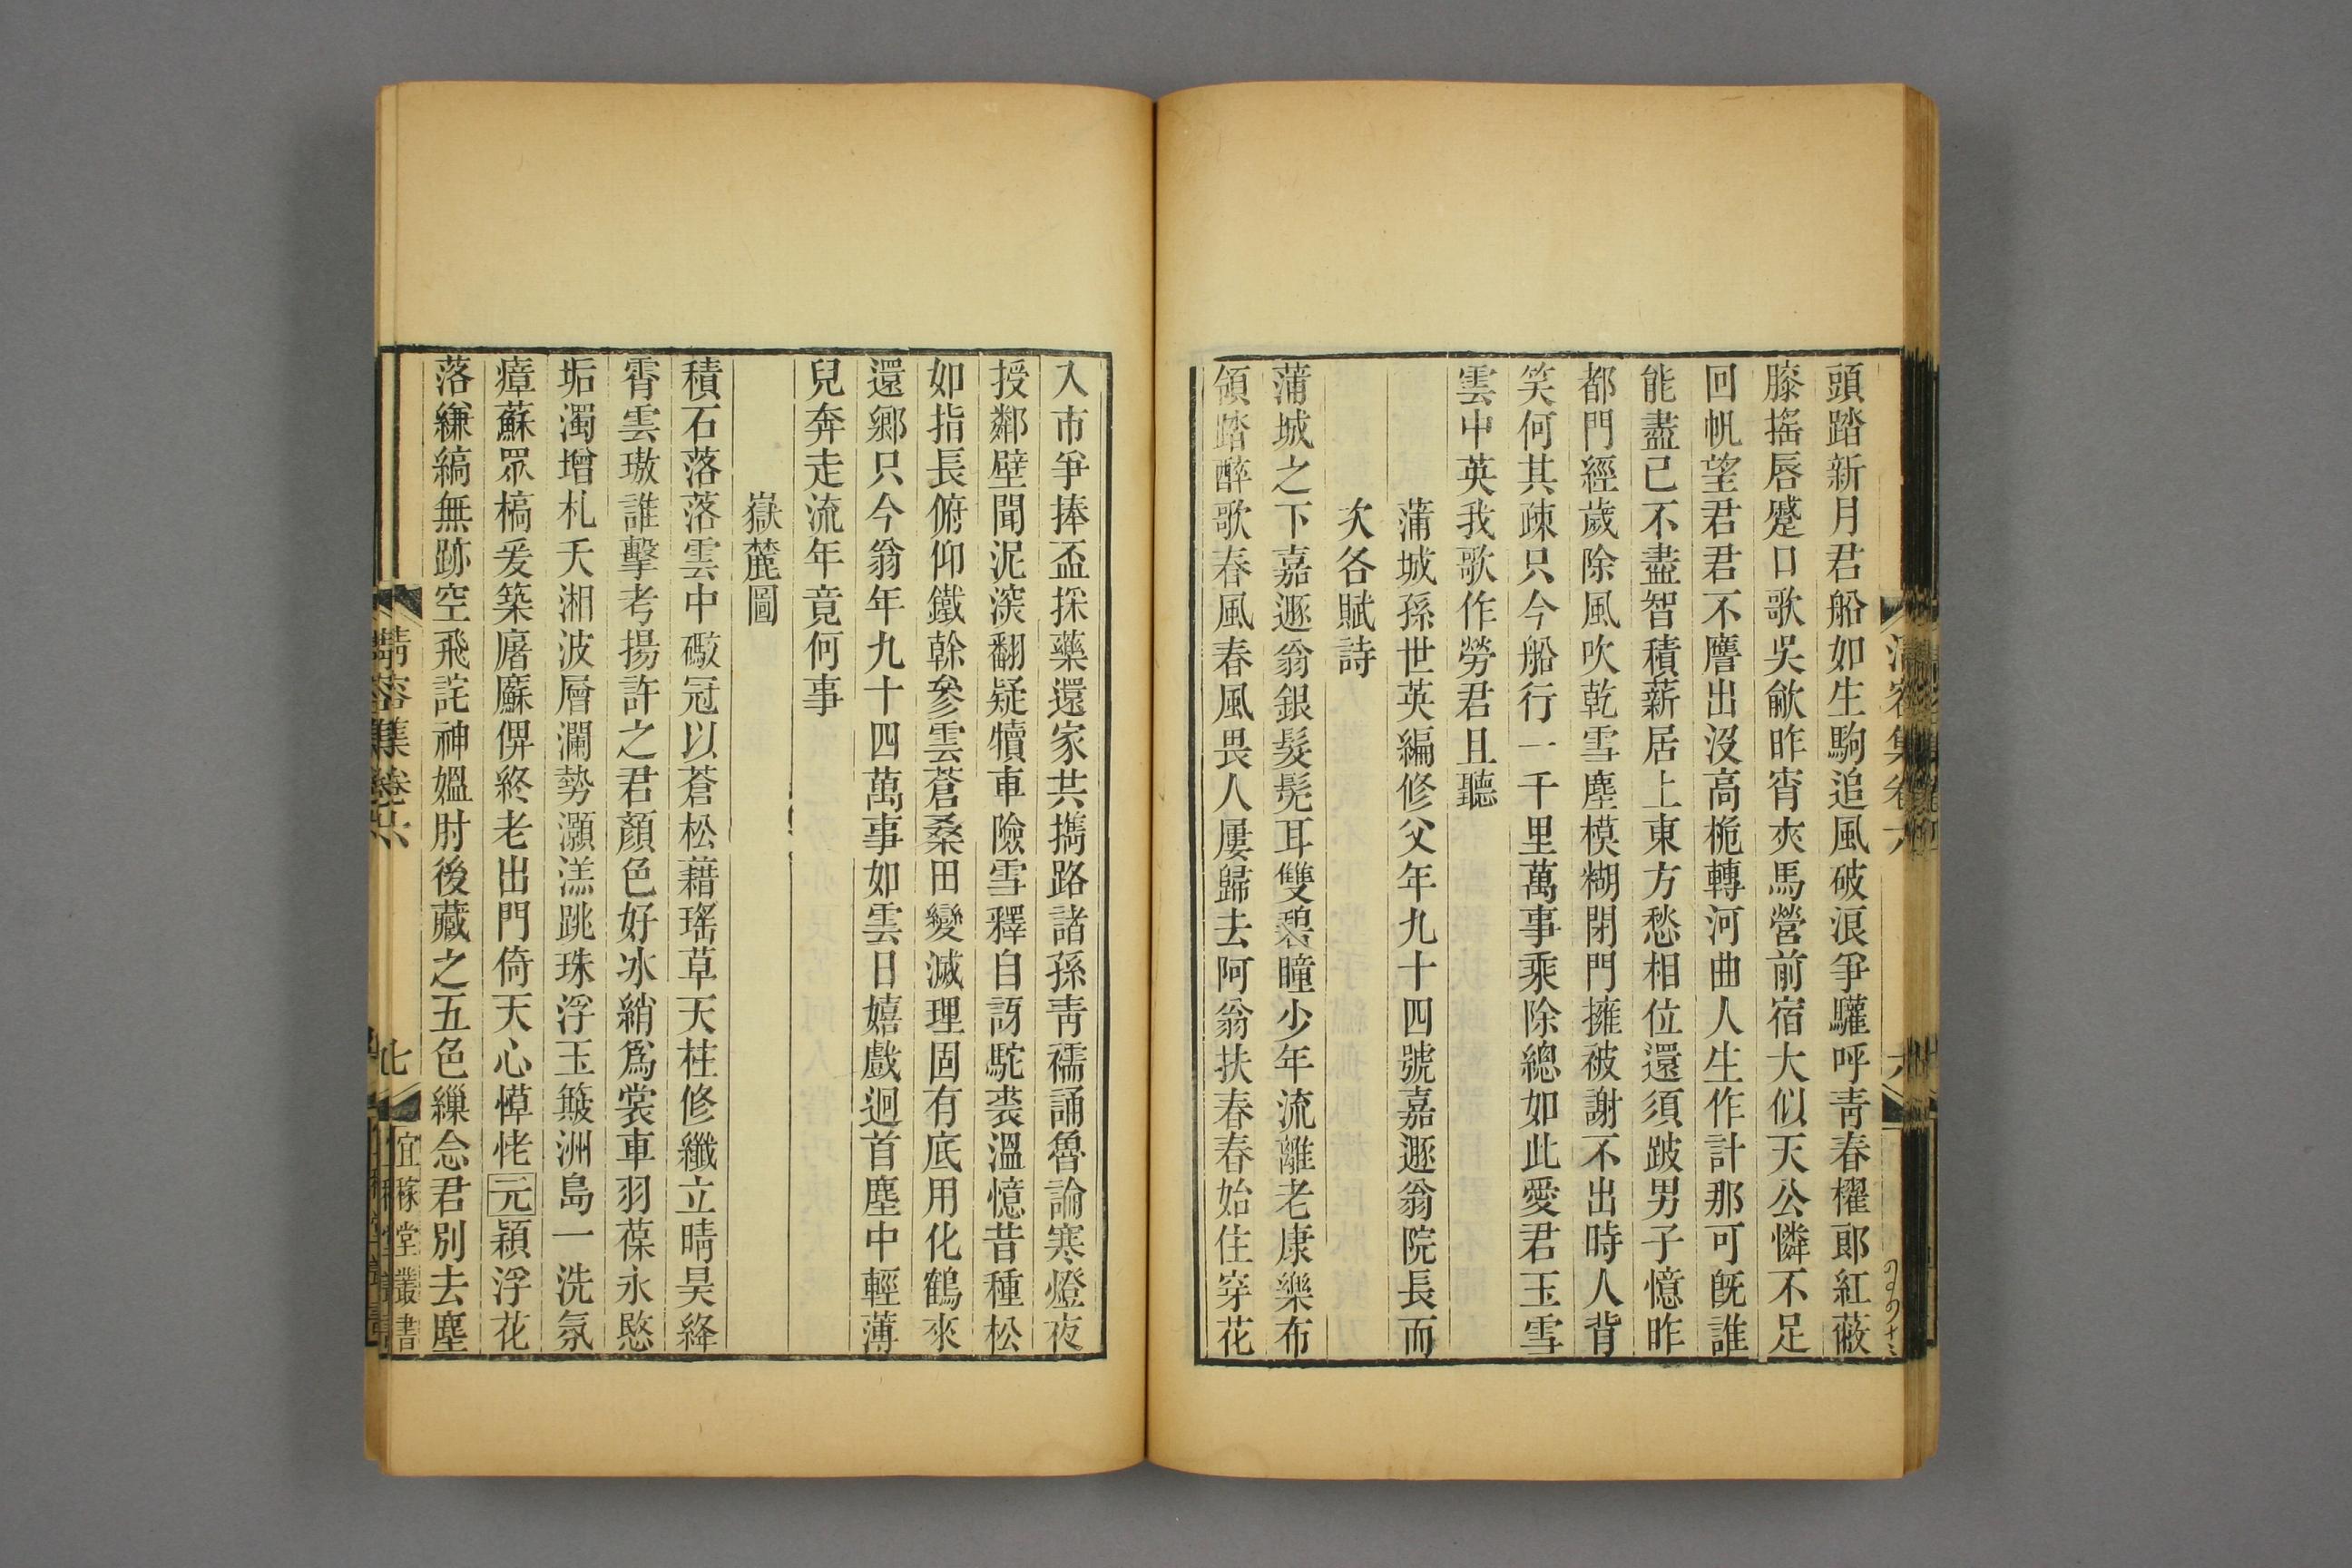 頭踏新月君船如生駒追風破浪爭驩呼靑春櫂郞紅蔽
膝搖唇蹙口歌吳歈昨宵夾馬營前宿大似天公憐不足
回帆望君君不譍出沒高桅轉河曲人生作計那可旣誰
能盡已不盡智積薪居上東方愁相位還須跛男子憶昨
都門經歲除風吹乾雪塵模糊閉門擁被謝不出時人背
笑何其疎只今船行一千里萬事乘除總如此愛君玉雪
雲中英我歌作勞君且聽
蒲城孫世英編修父年九十四號嘉遯翁院長而
次各賦詩
蒲城之下嘉遯翁銀髮髡耳雙碧瞳少年流離老康樂布
領踏醉歌春風春風畏人屢歸去阿翁扶春春始住穿花
入市爭捧盃採藥還家共攜路諸孫靑襦誦魯論寒燈夜
授鄰壁聞泥深翻疑犢車險雪釋自訝駝裘溫憶昔種松
如指長俯仰鐵幹參雲蒼桑田變滅理固有底用化鶴來
還鄉只今翁年九十四萬事如雲日嬉戲迴首塵中輕薄
兒奔走流年竟何事
嶽麓圖
積石落落雲中礅冠以蒼松藉瑤草天柱修纖立晴昊絳
霄雲璈誰擊考揚許之君顏色好冰綃爲裳車羽葆永愍
垢濁增札夭湘波層瀾勢灝溔跳珠浮玉簸洲島一洗氛
瘴蘇眾槁爰築廜㢝俾終老出門倚天心愺恅元穎浮花
落縑縞無跡空飛詫神媼肘後藏之五色繅念君別去塵
清容集卷六
六
清容集卷六
七
宜稼堂叢書